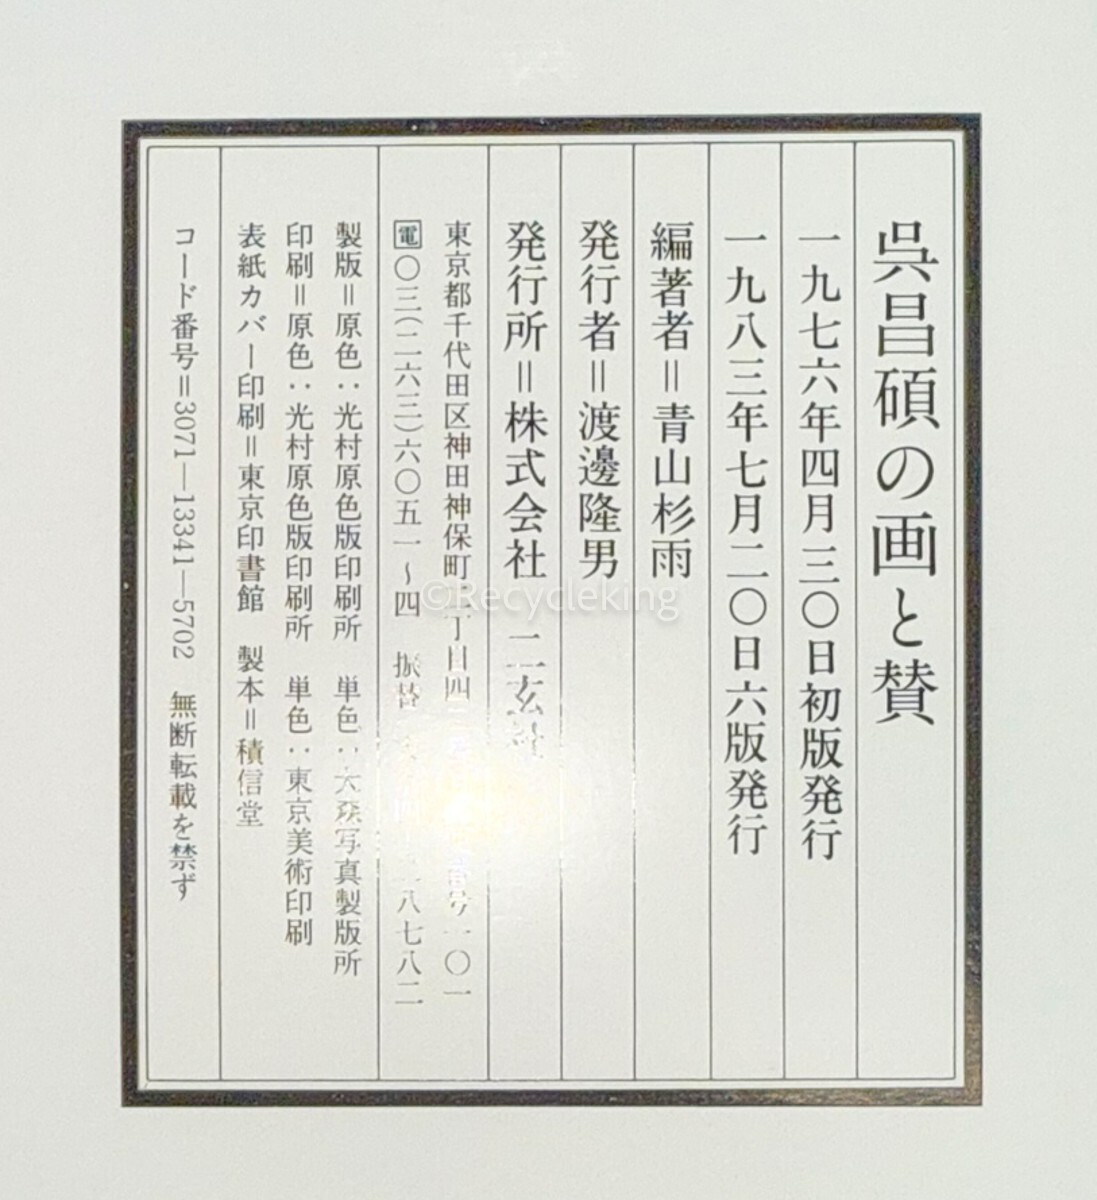 呉昌碩の画と賛
一九七六年四月三〇日初版発行
一九八三年七月二〇日六版発行
編著者＝青山杉雨
発行者＝渡邊隆男
発行所＝株式会社 二玄社
東京都千代田区神田神保町 丁目四 号一〇一
電〇三(二六三)六〇五一〜四 振替 八七八二
製版＝原色：光村原色版印刷所 単色：大森写真製版所
印刷＝原色：光村原色版印刷所 単色：東京美術印刷
表紙カバー印刷＝東京印書館 製本＝積信堂
コード番号＝3071―13341―5702 無断転載を禁ず
©Recycleking